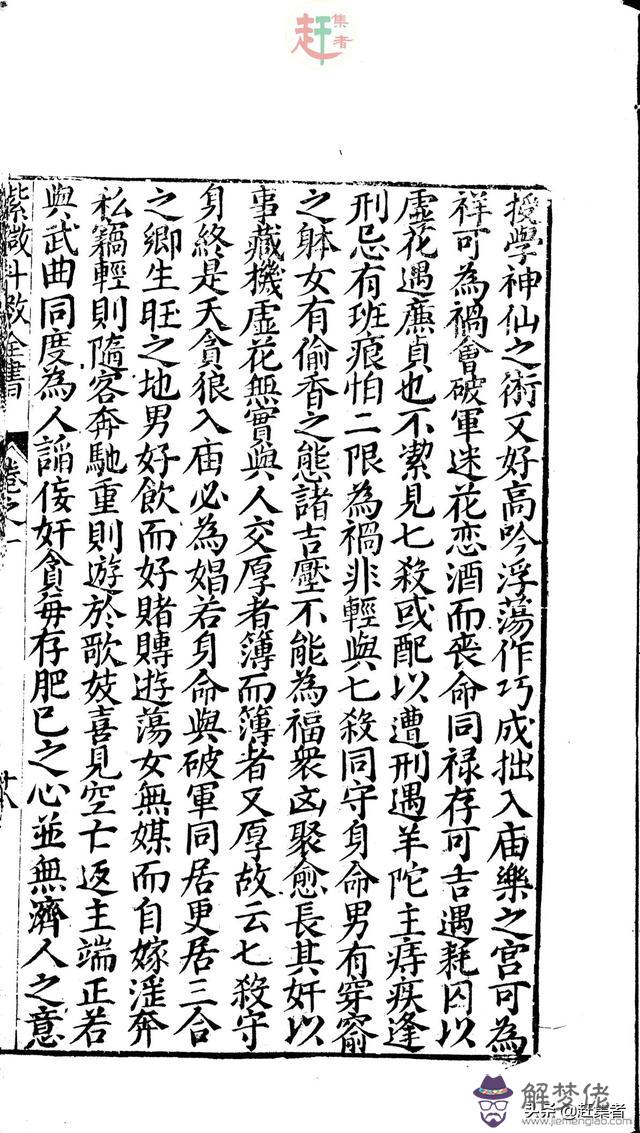 赶集者
授學神仙之術又好高吟浮蕩作巧成拙入庙樂之宫可為
祥可為禍會破軍迷花恋酒而丧命同禄存可吉遇耗囚以
虚花遇廉貞也不潔見七殺或配以遭刑遇羊陀主痔疾逢
刑忌有班痕怕二限為禍非輕與七殺同守身命男有穿窬
之躰女有偷香之態諸吉壓不能為福衆凶聚愈長其奸以
事藏機虚花無實與人交厚者簿而簿者又厚故云七殺守
身終是夭貪狼入庙必為娼若身命與破軍同居更居三合
之鄉生旺之地男好飲而好賭賻遊蕩女無媒而自嫁滛奔
私竊輕則隨客奔馳重則遊於歌妓喜見空亡返主端正若
與武曲同度為人謟佞奸貪每存肥已之心並無濟人之意
紫微斗数全書
卷之一
廿八
解梦佬
www.jiemenglao.com
头条@赶集者